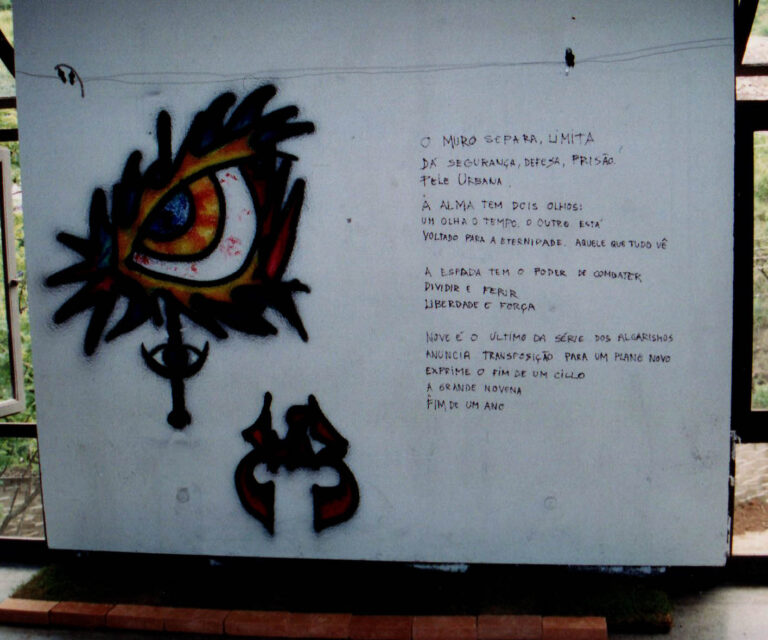 O MURO SEPARA, LIMITA
DÁ SEGURANÇA, DEFESA, PRISÃO.
PELE URBANA.
A ALMA TEM DOIS OLHOS:
UM OLHA O TEMPO. O OUTRO ESTÁ
VOLTADO PARA A ETERNIDADE. AQUELE QUE TUDO VÊ
A ESPADA TEM O PODER DE COMBATER
DIVIDIR E FERIR
LIBERDADE E FORÇA
NOVE É O ULTIMO DA SÉRIE DOS ALGARISMOS
ANUNCIA TRANSPOSIÇÃO PARA UM PLANO NOVO
EXPRIME O FIM DE UM CICLO
A GRANDE NOVENA
FIM DE UM ANO